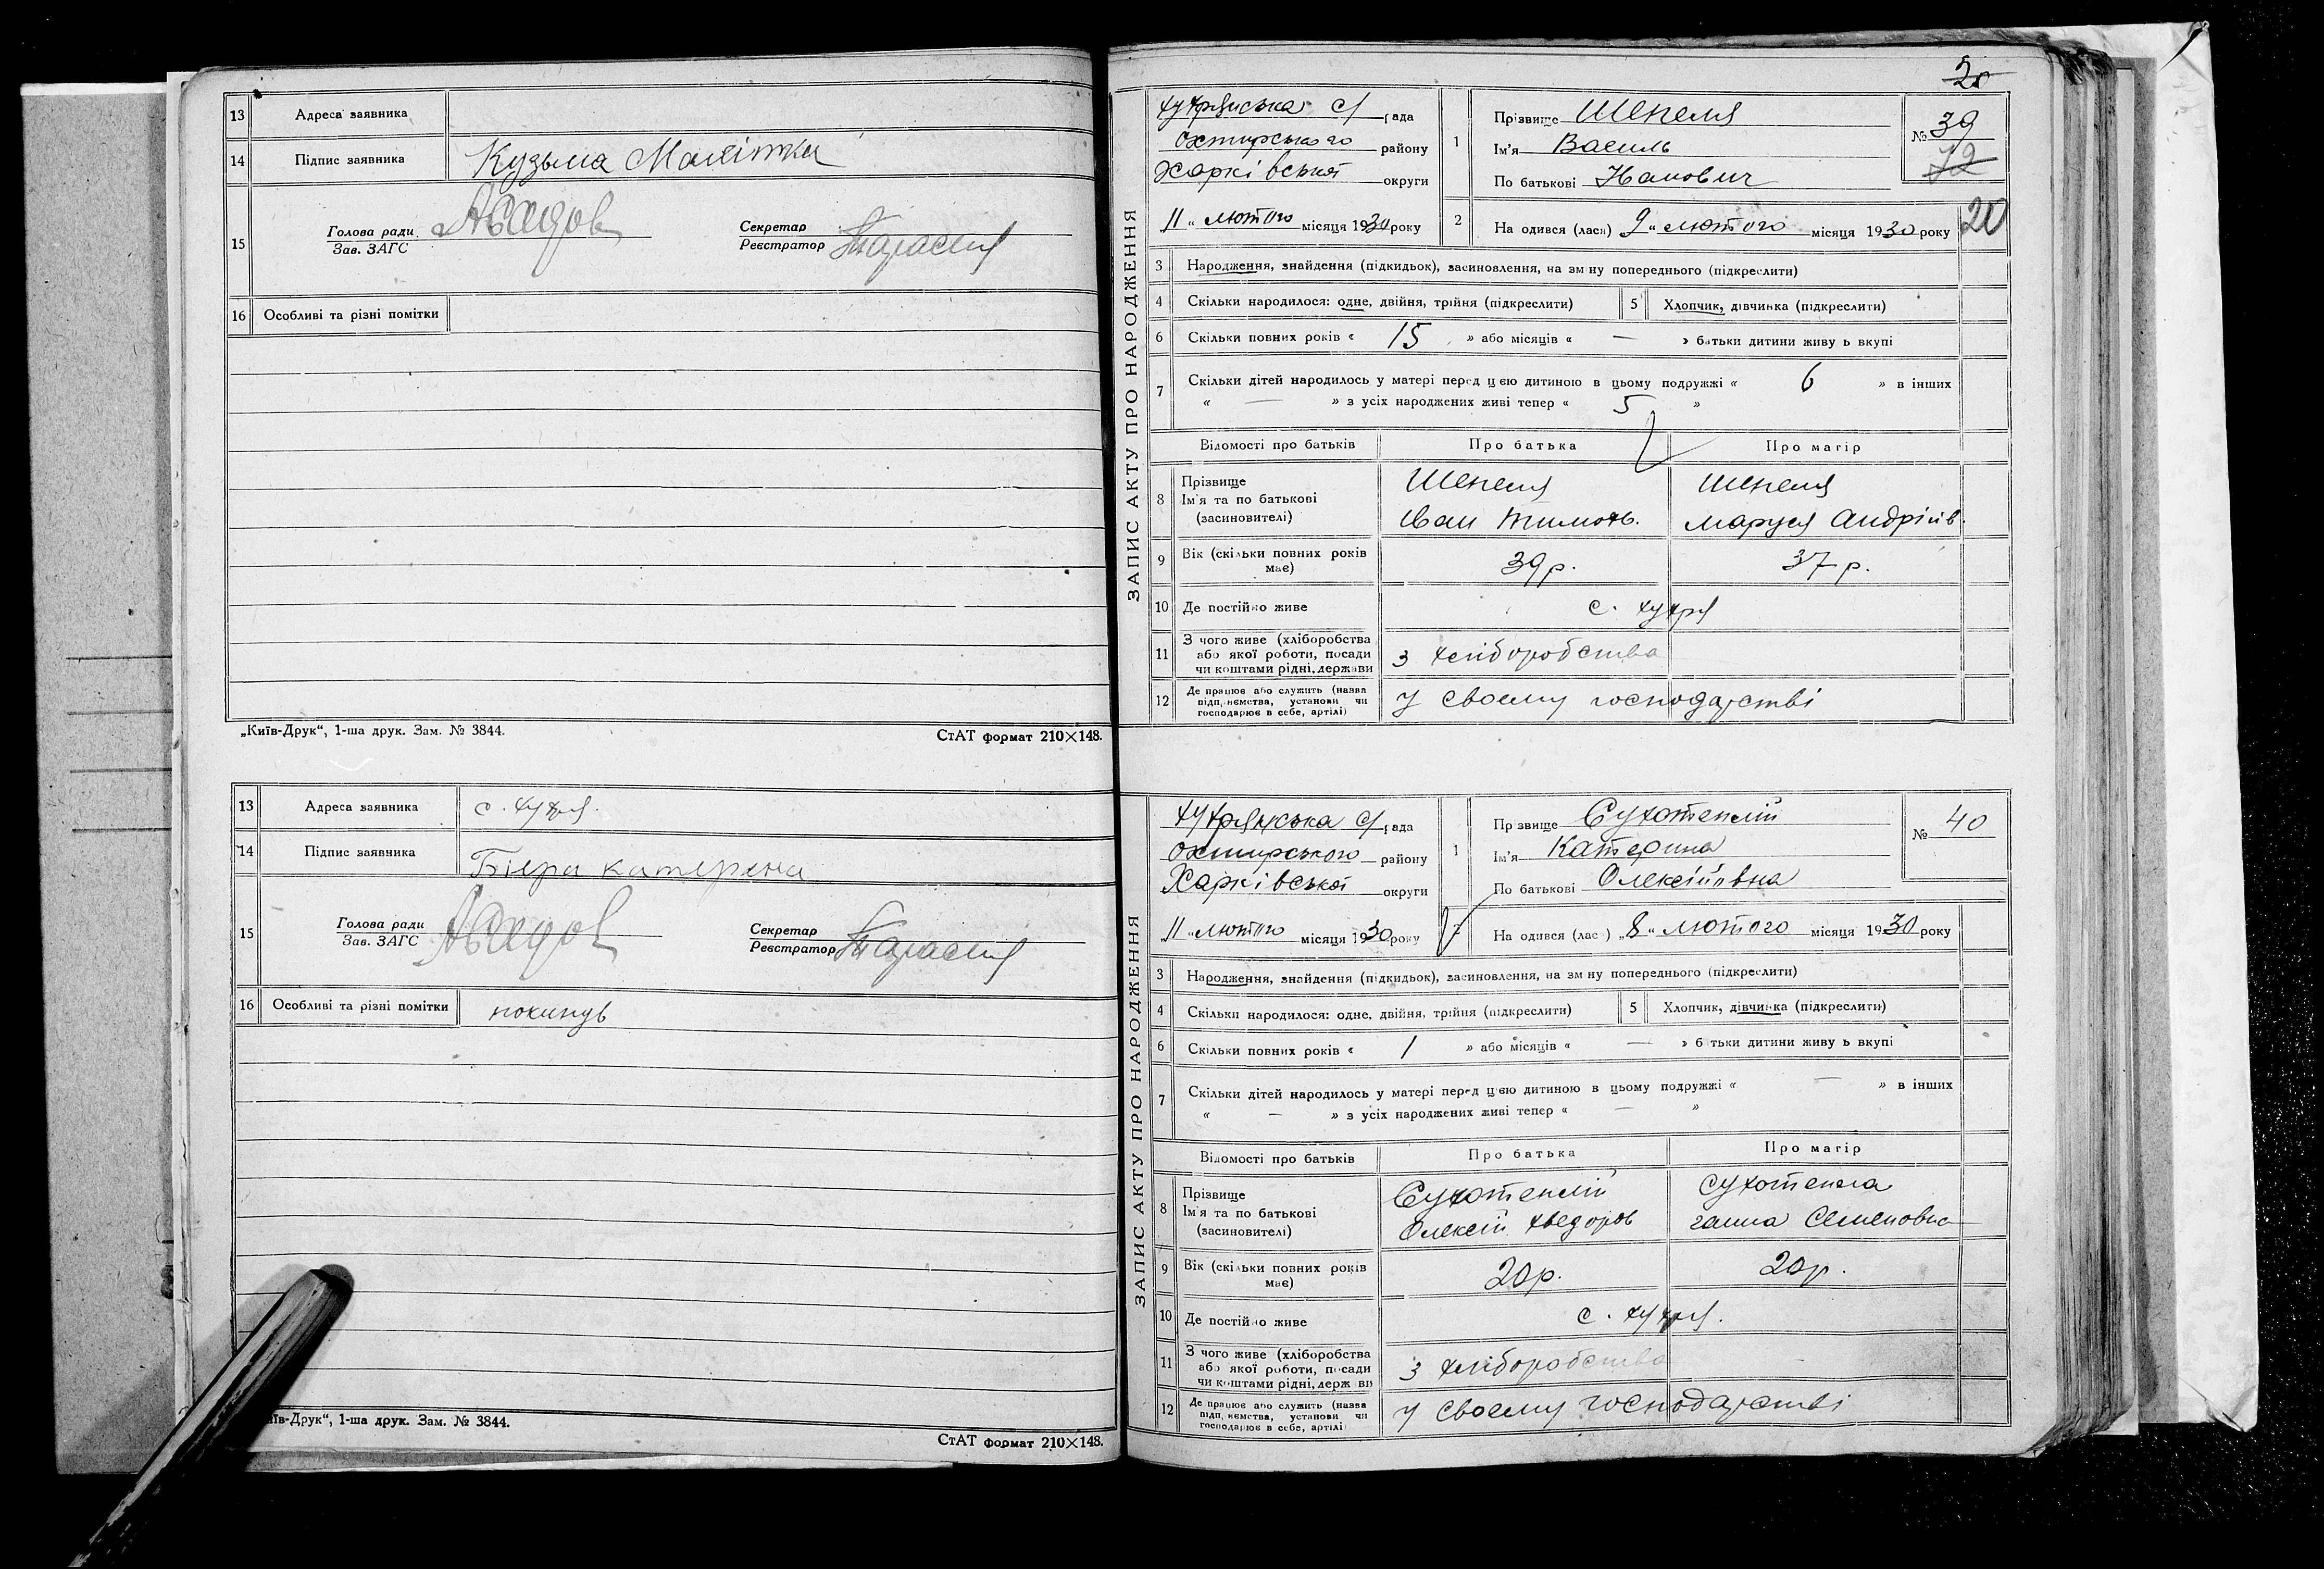 13 Адреса заявника
14 Підпис заявника Кузьма
15 Голова ради
Зав. ЗАГС
Секретар
Реєстратор
16 Особливі та різні помітки
„Київ-Друк“, 1-ша друк. Зам. № 3844.
СтАТ формат 210×148.
13 Адреса заявника с. Хухря.
14 Підпис заявника катерена
15 Голова ради
Зав. ЗАГС
Секретар
Реєстратор
16 Особливі та різні помітки
їв-Друк“, 1-ша друк. Зам. № 3844.
СтАТ формат 210×148.
20
ЗАПИС АКТУ ПРО НАРОДЖЕННЯ
Хухрянська с/рада
Охтирського району
Харківської округи
11 „ лютого місяця 1930 року
1 Прізвище Шепеля
Ім'я Василь
По батькові Іванович
№ 39
72
2 На одився (лася) 9 „ лютого місяця 1930 року
20
3 Народження, знайдення (підкидьок), засиновлення, на зм ну попереднього (підкреслити)
4 Скільки народилося: одне, двійня, трійня (підкреслити)
5 Хлопчик, дівчинка (підкреслити)
6 Скільки повних років « 15 » або місяців « — » батьки дитини живу ь вкупі
7 Скільки дітей народилось у матері перед цією дитиною в цьому подружжі « 6 » в інших
« — » з усіх народжених живі тепер « 5 »
Відомості про батьків Про батька Про матір
8 Прізвище Шепеля Шепеля
Ім'я та по батькові
(засиновителі) Іван Тимоф. Маруся Андріїв.
9 Вік (скільки повних років
має) 39 р. 37 р.
10 Де постійно живе с. Хухря
11 З чого живе (хліборобства
або якої роботи, посади
чи коштами рідні, держави з хліборобства
12 Де працює або служить (назва
підп, иємства, установи чи
господарює в себе, артілі) у своєму господарстві
ЗАПИС АКТУ ПРО НАРОДЖЕННЯ
Хухрянська с/рада
Охтирського району
Харківської округи
11 „ лютого місяця 1930 року
1 Пр звище Сухотеплий
Ім'я Катерина
По батькові Олексіївна
№ 40
На одився (лас ) „8„ лютого місяця 1930 року
3 Народження, знайдення (підкидьок), засиновлення, на зм ну попереднього (підкреслити)
4 Скільки народилося: одне, двійня, трійня (підкреслити)
5 Хлопчик, дівчинка (підкреслити)
6 Скільки повних років « 1 » або місяців « — » б тьки дитини живу ь вкупі
7 Скільки дітей народилось у матері перед цією дитиною в цьому подружжі « — » в інших
« — » з усіх народжених живі тепер « — »
Відомості про батьків Про батька Про матір
8 Прізвище Сухотеплий Сухотепла
Ім'я та по батькові
(засиновителі) Олексій Хведоров Ганна Семеновна
9 Вік (скільки повних років
має) 20 р. 20 р.
10 Де постійно живе с. Хухря.
11 З чого живе (хліборобства
або якої роботи, посади
чи коштами рідні, держ ви з хліборобства
12 Де працює або служить (назва
підп, иємства, установи чи
господарює в себе, артілі) у своєму господарстві